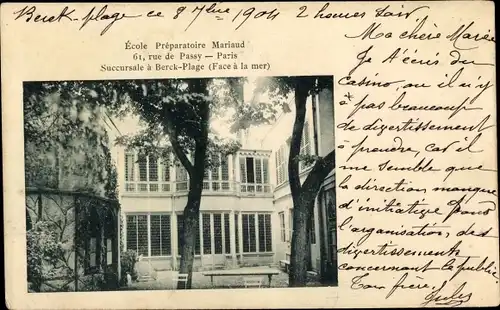 Berck-plage ce 8 7bre 1904 2 heures soir
École Préparatoire Mariaud
61, rue de Passy — Paris
Succursale à Berck-Plage (Face à la mer)
Ma chère Marie
Je t'écris du
casino, ou il n'y
a pas beaucoup
de divertissement
à prendre, car il
me semble que
la direction manque
d'initiative pour
l'organisation, des
divertissements
concernant le public
Ton frère
Jules